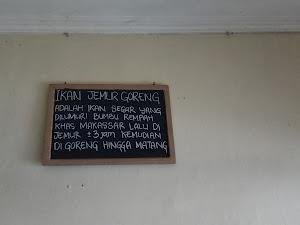 IKAN JEMUR GORENG
ADALAH IKAN SEGAR YANG
DILUMURI BUMBU REMPAH
KHAS MAKASSAR LALU DI
JEMUR ±3 jam KEMUDIAN
DI GORENG HINGGA MATANG